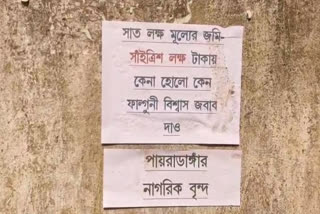 সাত লক্ষ মূল্যের জমি-
সাঁইত্রিশ লক্ষ টাকায়
কেনা হোলো কেন
ফাল্গুনী বিশ্বাস জবাব
দাও
পায়রাডাঙ্গাঁর
নাগরিক বৃন্দ